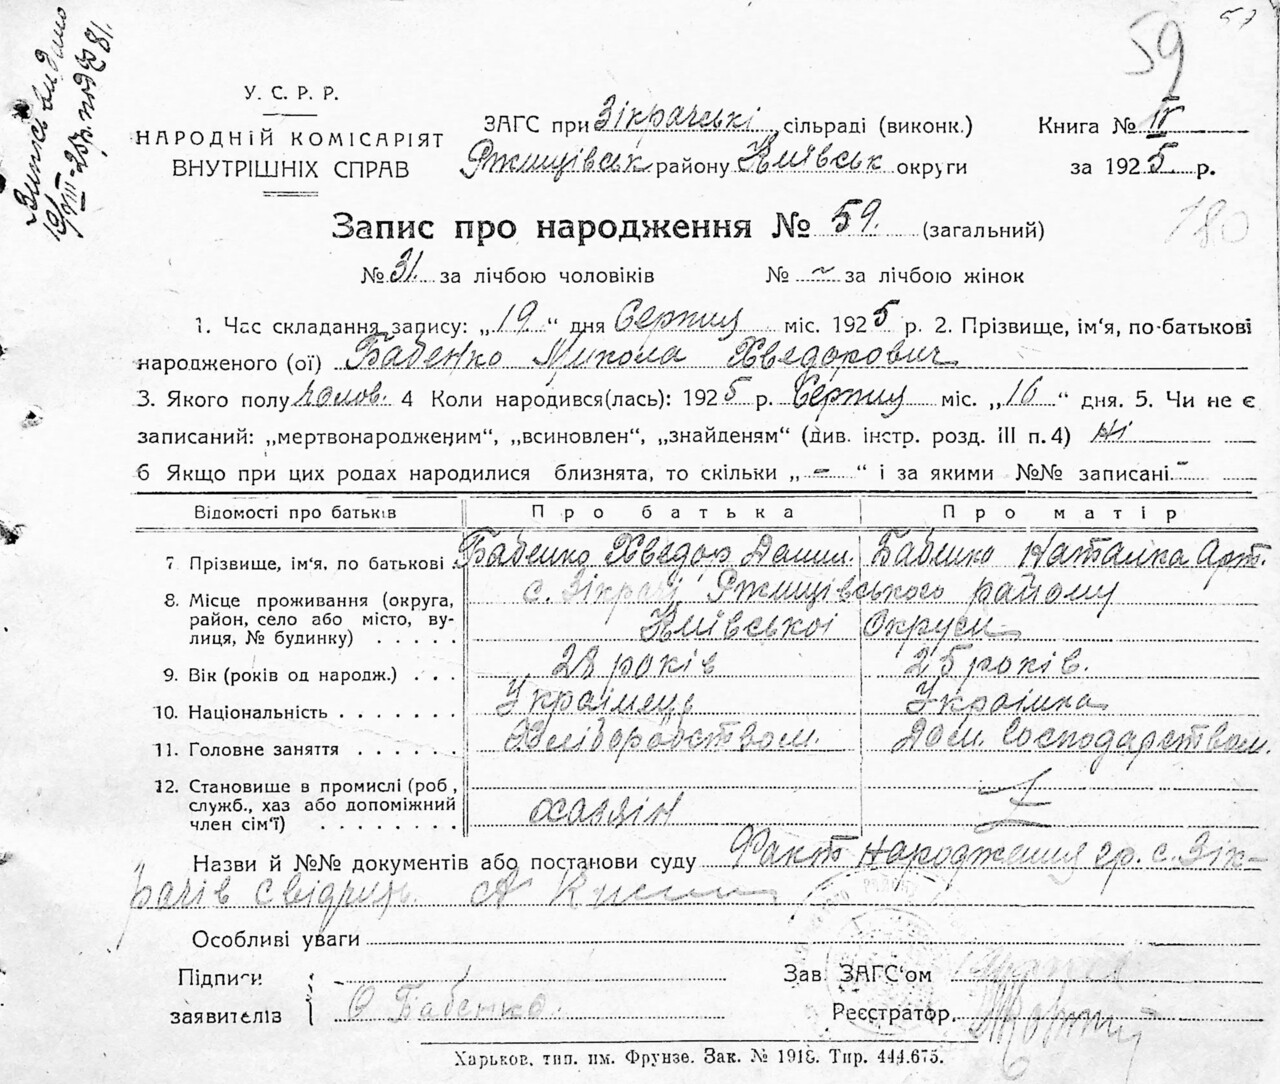 57
59
Випись видано
19/VIII-25р. под № 81.
У. С. Р. Р.
НАРОДНІЙ КОМІСАРІЯТ
ВНУТРІШНІХ СПРАВ
ЗАГС при Зікрачські сільраді (виконк.)
Ржищівськ району Київськ округи
Книга № II
за 1925 р.
180
Запис про народження № 59. (загальний)
№ 31. за лічбою чоловіків № ~ за лічбою жінок
1. Час складання запису: „19“ дня Серпня міс. 1925 р. 2. Прізвище, ім'я, по-батькові
народженого (ої) Бабенко Микола Хведорович
3. Якого полу чолов. 4 Коли народився(лась): 1925 р. Серпня міс. „16“ дня. 5. Чи не є
записаний: „мертвонародженим“, „всиновлен“, „знайденям“ (див. інстр. розд. III п. 4) ні
6 Якщо при цих родах народилися близнята, то скільки „-“ і за якими №№ записані -
Відомості про батьків Про батька Про матір
7 Прізвище, ім'я, по батькові Бабенко Хведор Данил. Бабенко Наталка Арт.
8. Місце проживання (округа, район, село або місто, вулиця, № будинку) с. Зікрачі Ржищівського району
Київської Округи
9. Вік (років од народж.) 28 років 25 років.
10. Національність Українець Українка
11. Головне заняття Хліборобством. Дом. Господарством.
12. Становище в промислі (роб, служб., хаз або допоміжний член сім'ї) хазяін
Назви й №№ документів або постанови суду Факт народження гр. с. Зік-
рачів свідчить
Особливі уваги
Підписи
заявителів О Бабенко.
Зав. ЗАГС'ом
Реєстратор.
Харьков, тип. им. Фрунзе. Зак. № 1918. Тир. 444.675.